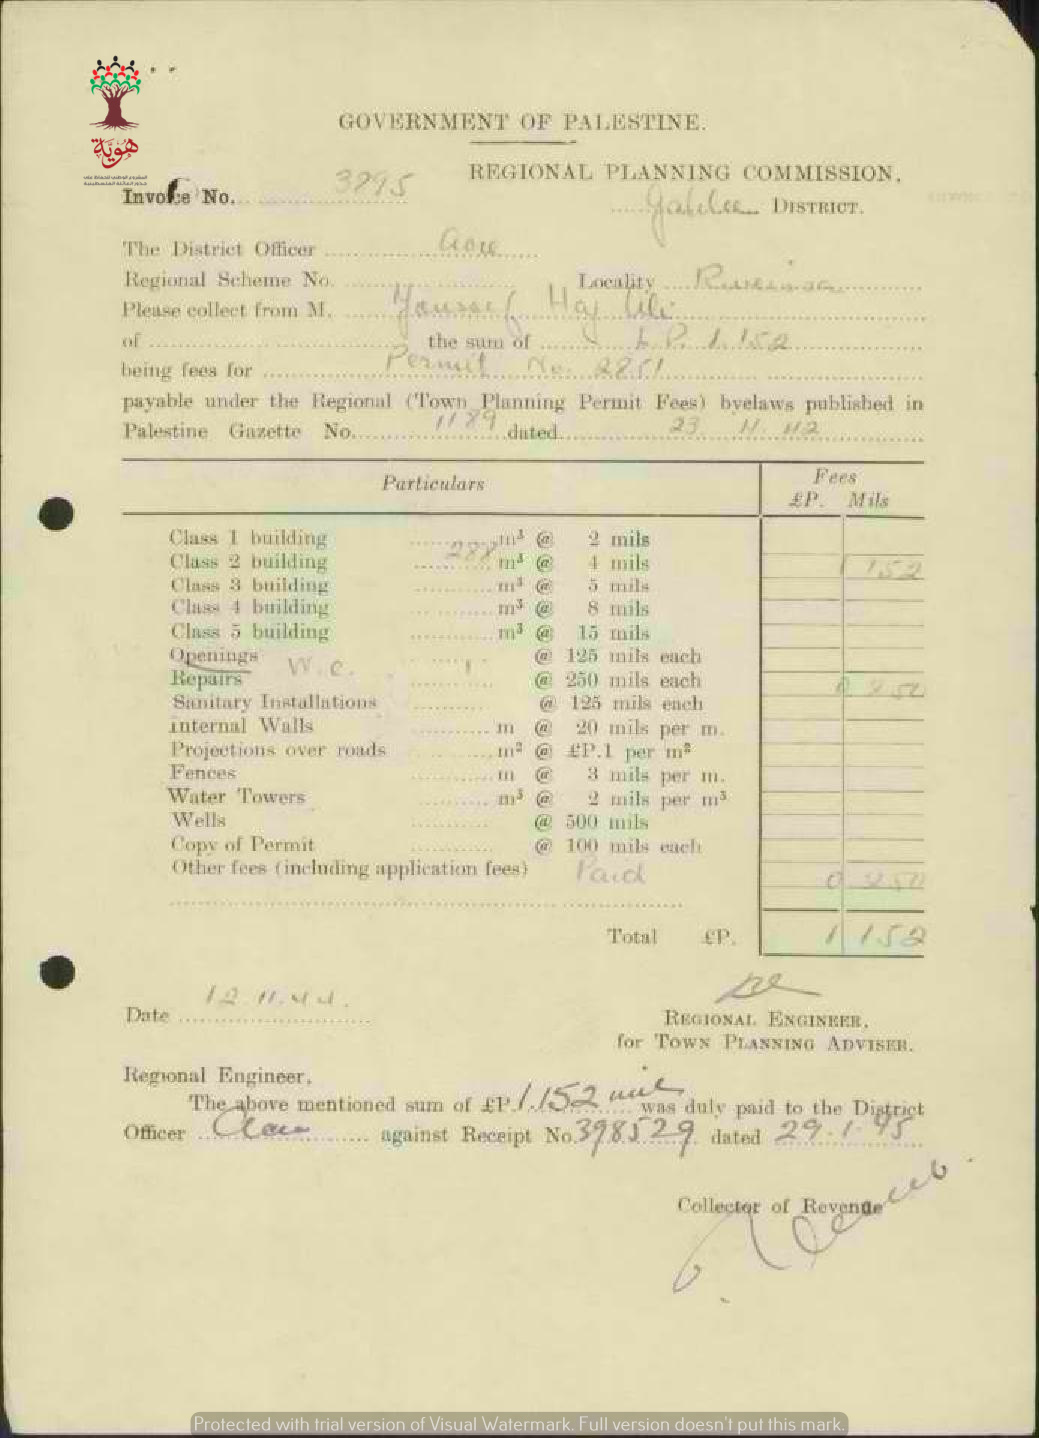 هوية
GOVERNMENT OF PALESTINE.
REGIONAL PLANNING COMMISSION,
Invoice No. 3295
Galilee DISTRICT.
The District Officer Acre
Regional Scheme No. Locality
Please collect from M. Youssef Haj Ali
of the sum of L.P. 1.152
being fees for Permit No. 2251
payable under the Regional (Town Planning Permit Fees) byelaws published in
Palestine Gazette No. 1189 dated 23. 11. 42
Particulars Fees
£P. Mils
Class 1 building m³ @ 2 mils
Class 2 building 288 m³ @ 4 mils 1 152
Class 3 building m³ @ 5 mils
Class 4 building m³ @ 8 mils
Class 5 building m³ @ 15 mils
Openings @ 125 mils each
Repairs W.C. 1 @ 250 mils each 0 250
Sanitary Installations @ 125 mils each
Internal Walls m @ 20 mils per m.
Projections over roads m² @ £P.1 per m²
Fences m @ 3 mils per m.
Water Towers m³ @ 2 mils per m³
Wells @ 500 mils
Copy of Permit @ 100 mils each
Other fees (including application fees) Paid 0 250
Total £P. 1 152
Date 12.11.44.
REGIONAL ENGINEER,
for TOWN PLANNING ADVISER.
Regional Engineer,
The above mentioned sum of £P. 1.152 mils was duly paid to the District
Officer Acre against Receipt No. 398529 dated 29.1.45
Collector of Revenue
Protected with trial version of Visual Watermark. Full version doesn't put this mark.